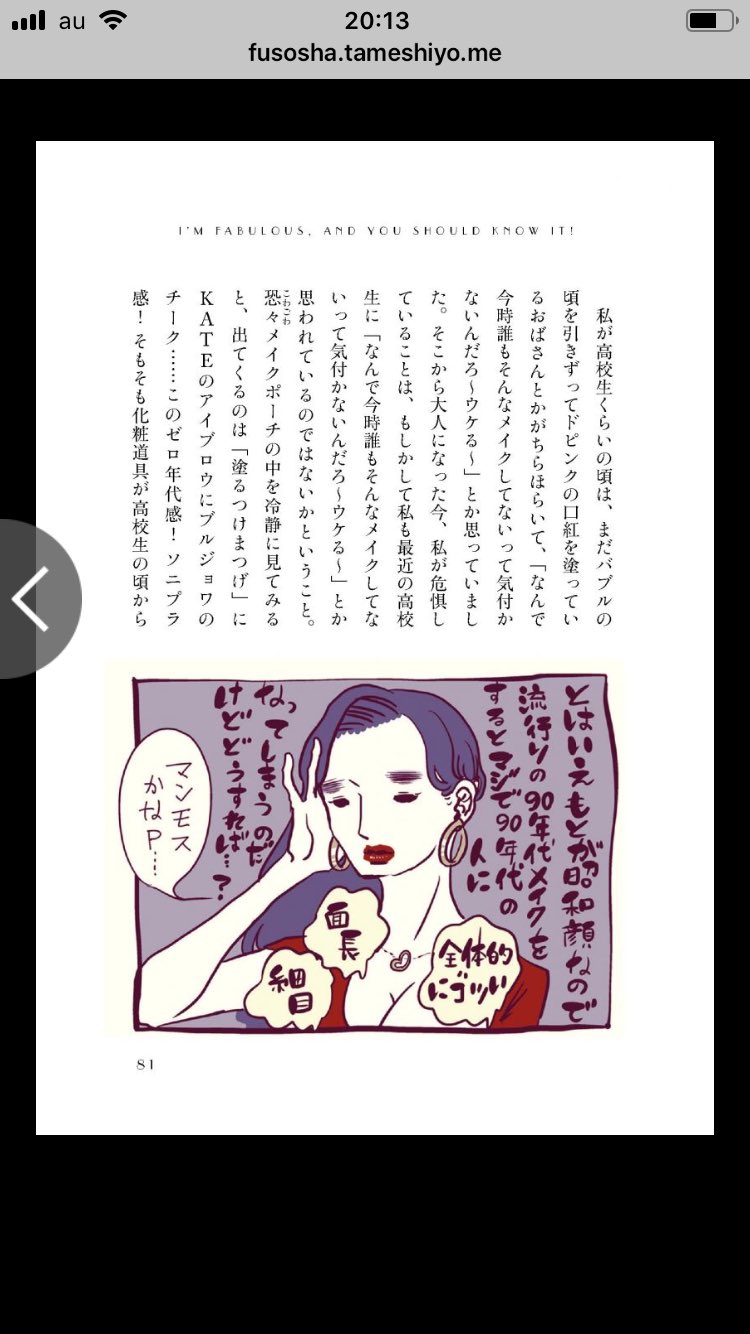 au
20:13
fusosha.tameshiyo.me
I'M FABULOUS, AND YOU SHOULD KNOW IT!
私が高校生くらいの頃は、まだバブルの
頃を引きずってドピンクの口紅を塗ってい
るおばさんとかがちらほらいて、「なんで
今時誰もそんなメイクしてないって気付か
ないんだろ〜ウケる〜」とか思っていまし
た。そこから大人になった今、私が危惧し
ていることは、もしかして私も最近の高校
生に「なんで今時誰もそんなメイクしてな
いって気付かないんだろ〜ウケる〜」とか
思われているのではないかということ。
恐々メイクポーチの中を冷静に見てみる
こわごわ
と、出てくるのは「塗るつけまつげ」に
KATEのアイブロウにブルジョワの
チーク……このゼロ年代感！ソニプラ
感！そもそも化粧道具が高校生の頃から
とはいえもとが昭和顔なので
流行りの90年代メイクを
するとマジで90年代の
人に
なってしまうのだ
けどどうすれば…？
マンモス
かなP…
面長
細目
全体的
にゴツい
81